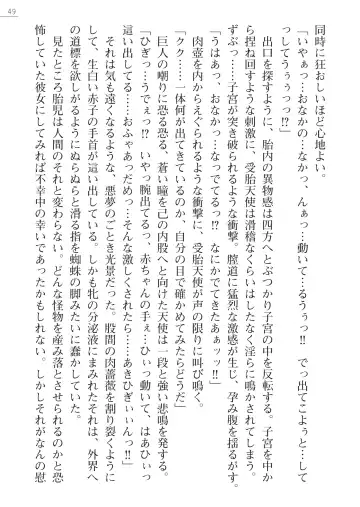 49
同時に狂おしいほど心地よい。
「いやぁっ…おなかの…なかっ、んぁっ…動いて…るうぅっ‼　でっ出てこよぉっ…して
っしてうぅぅっっ⁉」
出口を探すように、胎内の異物感は四方へとぶつかり子宮の中を反転する。子宮を中か
ら捏ね回すような刺激に、受胎天使は滑稽なくらいはしたなく淫らに鳴かされてしまう。
ずぷっ……子宮が突き破られるような衝撃。膣道に猛烈な激感が生じ、孕み腹を揺るがす。
「うはあっ、おなかっ…なってでてるっ⁉　なにかでてきたあぁッッ‼」
肉壺が内からえぐられるような衝撃に、受胎天使が声の限りに叫び鳴く。
「クク……一体何が出てきているのか、自分の目で確かめてみたらどうだ」
巨人の嘲りに恐る恐る、蒼い瞳を己の内股へと向けた天使は一段と強い悲鳴を発する。
「ひぎっ…うでぇっ⁉　いやっ腕出てるっ、赤ちゃんの手ぇ…ひぃっ動いて、はあひぃっ
這い出してる……おふぁあっだめっ…そんな激しくされたら…あきひぎぃぃんっ‼」
それは気も遠くなるような、悪夢のごとき光景だった。股間の肉薔薇を割り裂くように
して、生白い赤子の手首が這い出している。しかも牝の分泌液にまみれたそれは、外界へ
の道標を欲しがるようにぬらぬらと滑る指を蜘蛛の脚みたいに蠢かしていた。
見たところ胎児は人間のそれと変わらない。どんな怪物を産み落とさせられるのかと恐
怖していた彼女にしてみれば不幸中の幸いであったかもしれない。しかしそれがなんの慰